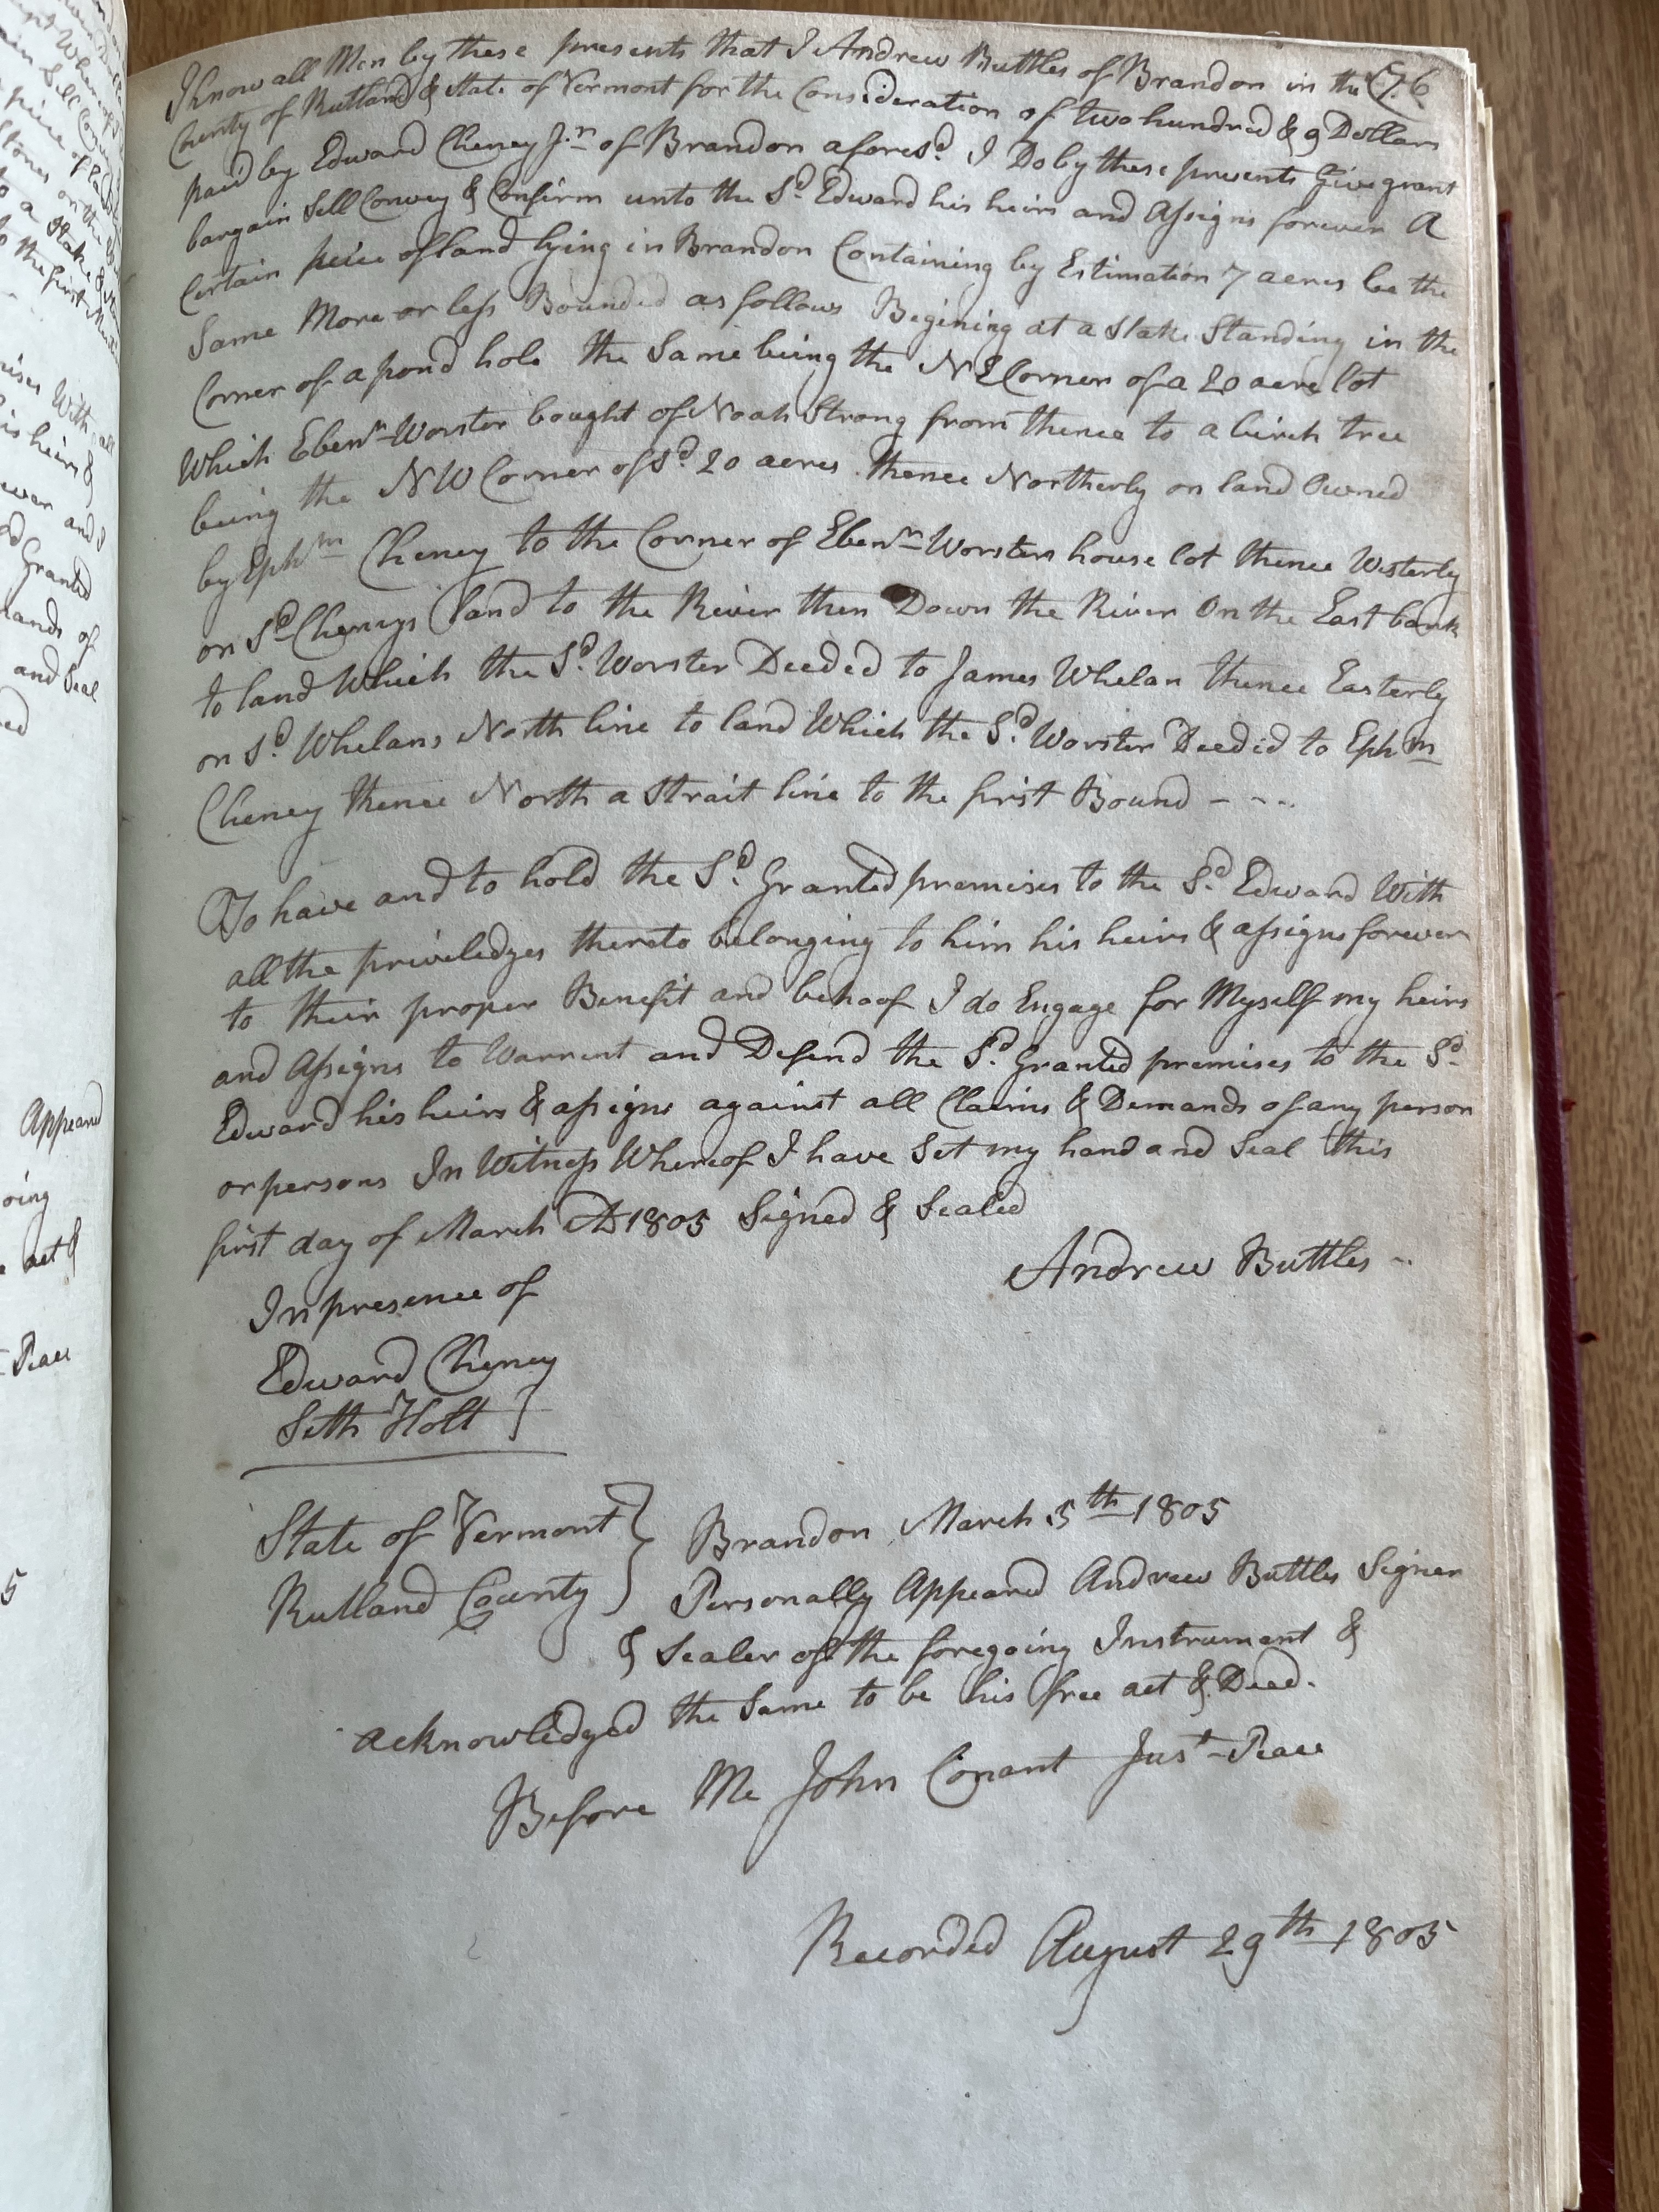 Know all Men by these presents that I Andrew Buttles of Brandon in the 76
County of Rutland & State of Vermont for the Consideration of two hundred & 9 Dollars
paid by Edward Cheney Jr. of Brandon aforesd. I Do by these presents Give grant
bargain Sell Convey & Confirm unto the Sd. Edward his heirs and Assigns forever A
Certain peice of land lying in Brandon Containing by Estimation 7 acres be the
Same More or less Bounded as follows Begining at a Stake Standing in the
Corner of a pond hole the Same being the N E Corner of a 20 acre lot
Which Ebenr. Worster bought of Noah Strong from thence to a birch tree
being the N W Corner of sd. 20 acres thence Northerly on land Owned
by Ephm Cheney to the Corner of Ebenr. Worsters house lot thence Westerly
on Sd Cheneys land to the River then Down the River On the East bank
to land Which the Sd. Worster Deeded to James Whelan thence Easterly
on Sd. Whelans North line to land Which the Sd. Worster Deeded to Ephm
Cheney thence North a Strait line to the first Bound - - - -
To have and to hold the Sd. Granted premises to the Sd. Edward With
all the priviledges thereto belonging to him his heirs & assigns forever
to their proper Benefit and behoof I do Engage for Myself my heirs
and Assigns to Warrent and Defend the Sd. Granted premises to the Sd.
Edward his heirs & assigns against all Claims & Demands of any person
or persons In Witness Whereof I have Set my hand and Seal this
first day of March AD 1805 Signed & Sealed
Andrew Buttles -
In presence of
Edward Cheney
Seth Holt }
State of Vermont } Brandon March 5th 1805
Rutland County } Personally Appeared Andrew Buttles Signer
& Sealer of the foregoing Instrument &
acknowledged the Same to be his free act & Deed.
Before Me John Conant Just Peace
Recorded August 29th 1805